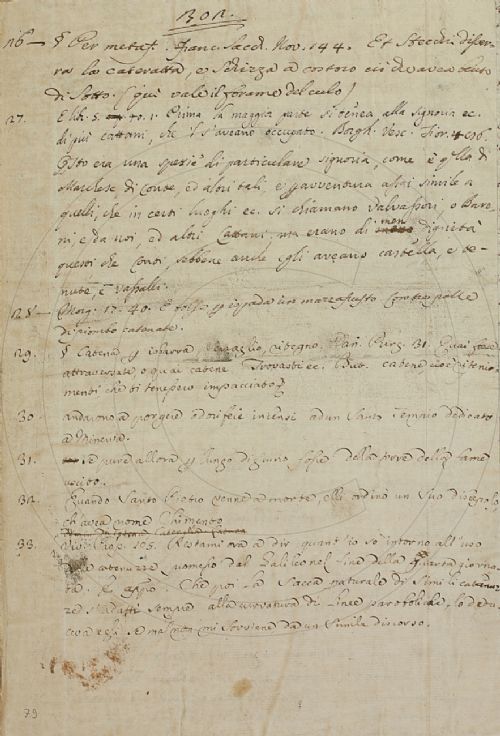 BOR.
26 — § Per metaf. Franc. Sacch. Nov. 144. Et Stecchi disser-
ra la cateratta, e schizza a costoro ciò che avea
di sotto. (qui vale il forame del culo)
27. E lib. 5. 1. Prima la maggior parte si tenea alla signoria ec.
di più cattani, che l'aveano occupato. Borgh. Vesc. Fior. 496.
Questo era una spezie di particulare signoria, come è quella di
Marchese di Conte, ed altri tali, e assai simile a
quelli, che in certi luoghi ec. si chiamano Valvassori, o Baro
ni, e da noi, ed altri Cattani, ma erano di men dignità
questi che Conti, sebbene anche egli aveano castella, e te-
nute, e vassalli.
28 — Morg. 19. 40. E tolse per ispada un mazzafrusto Con tre palle
di piombo catenate.
29. § Catena per isbarra ritegno. Dan. Purg. 31. Quai fosse
attraversate o quai catene Trovasti ec. But. catene cioè ritenio-
menti che ti tenessero impacciato?
30. andarono a porgere odoriferi incensi ad un Santo Tempio dedicato
a Minerva.
31. e pure allora per lungo digiuno fosse della torre della fame
uscito.
32. Quando Santo Pietro venne a morte, elli ordinò un suo discepolo
ch'avea nome Chimento
33. Viv. Prop. 105. Restami ora a dir quant'io so intorno all'uso
delle catenuzze promesso dal Galileo nel fine della Quarta giorna-
ta. E appr. Che poi la sacca naturale di simili catenuz-
ze s'adatti sempre alla curvatura di linee paraboliche, lo dedu-
ceva egli se mal non mi sovviene da un simile discorso.
79